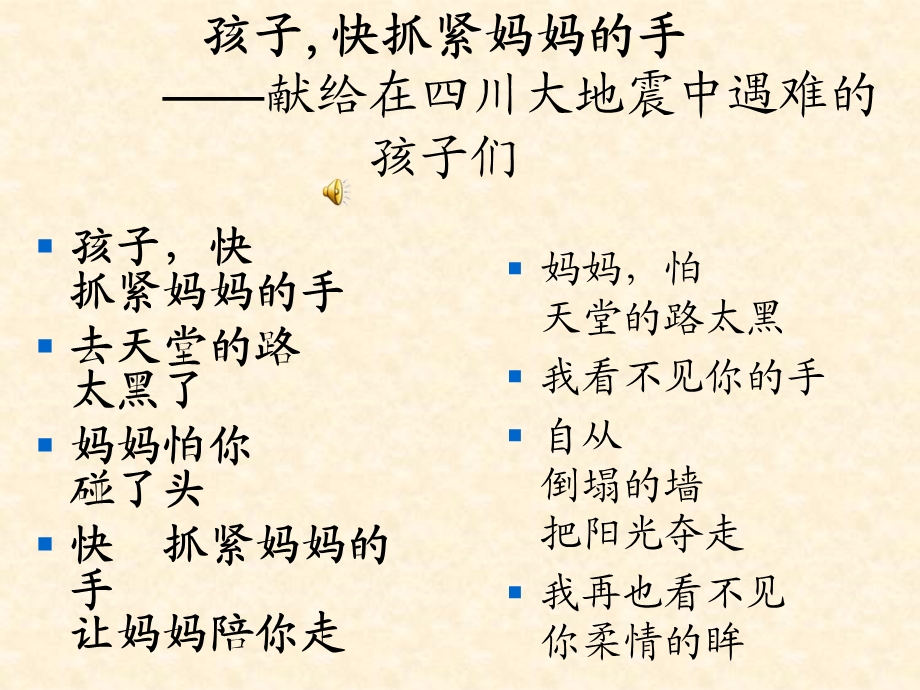 孩子,快抓紧妈妈的手
——献给在四川大地震中遇难的
孩子们
孩子，快
抓紧妈妈的手
去天堂的路
太黑了
妈妈怕你
碰了头
快　抓紧妈妈的
手
让妈妈陪你走
妈妈，怕
天堂的路太黑
我看不见你的手
自从
倒塌的墙
把阳光夺走
我再也看不见
你柔情的眸